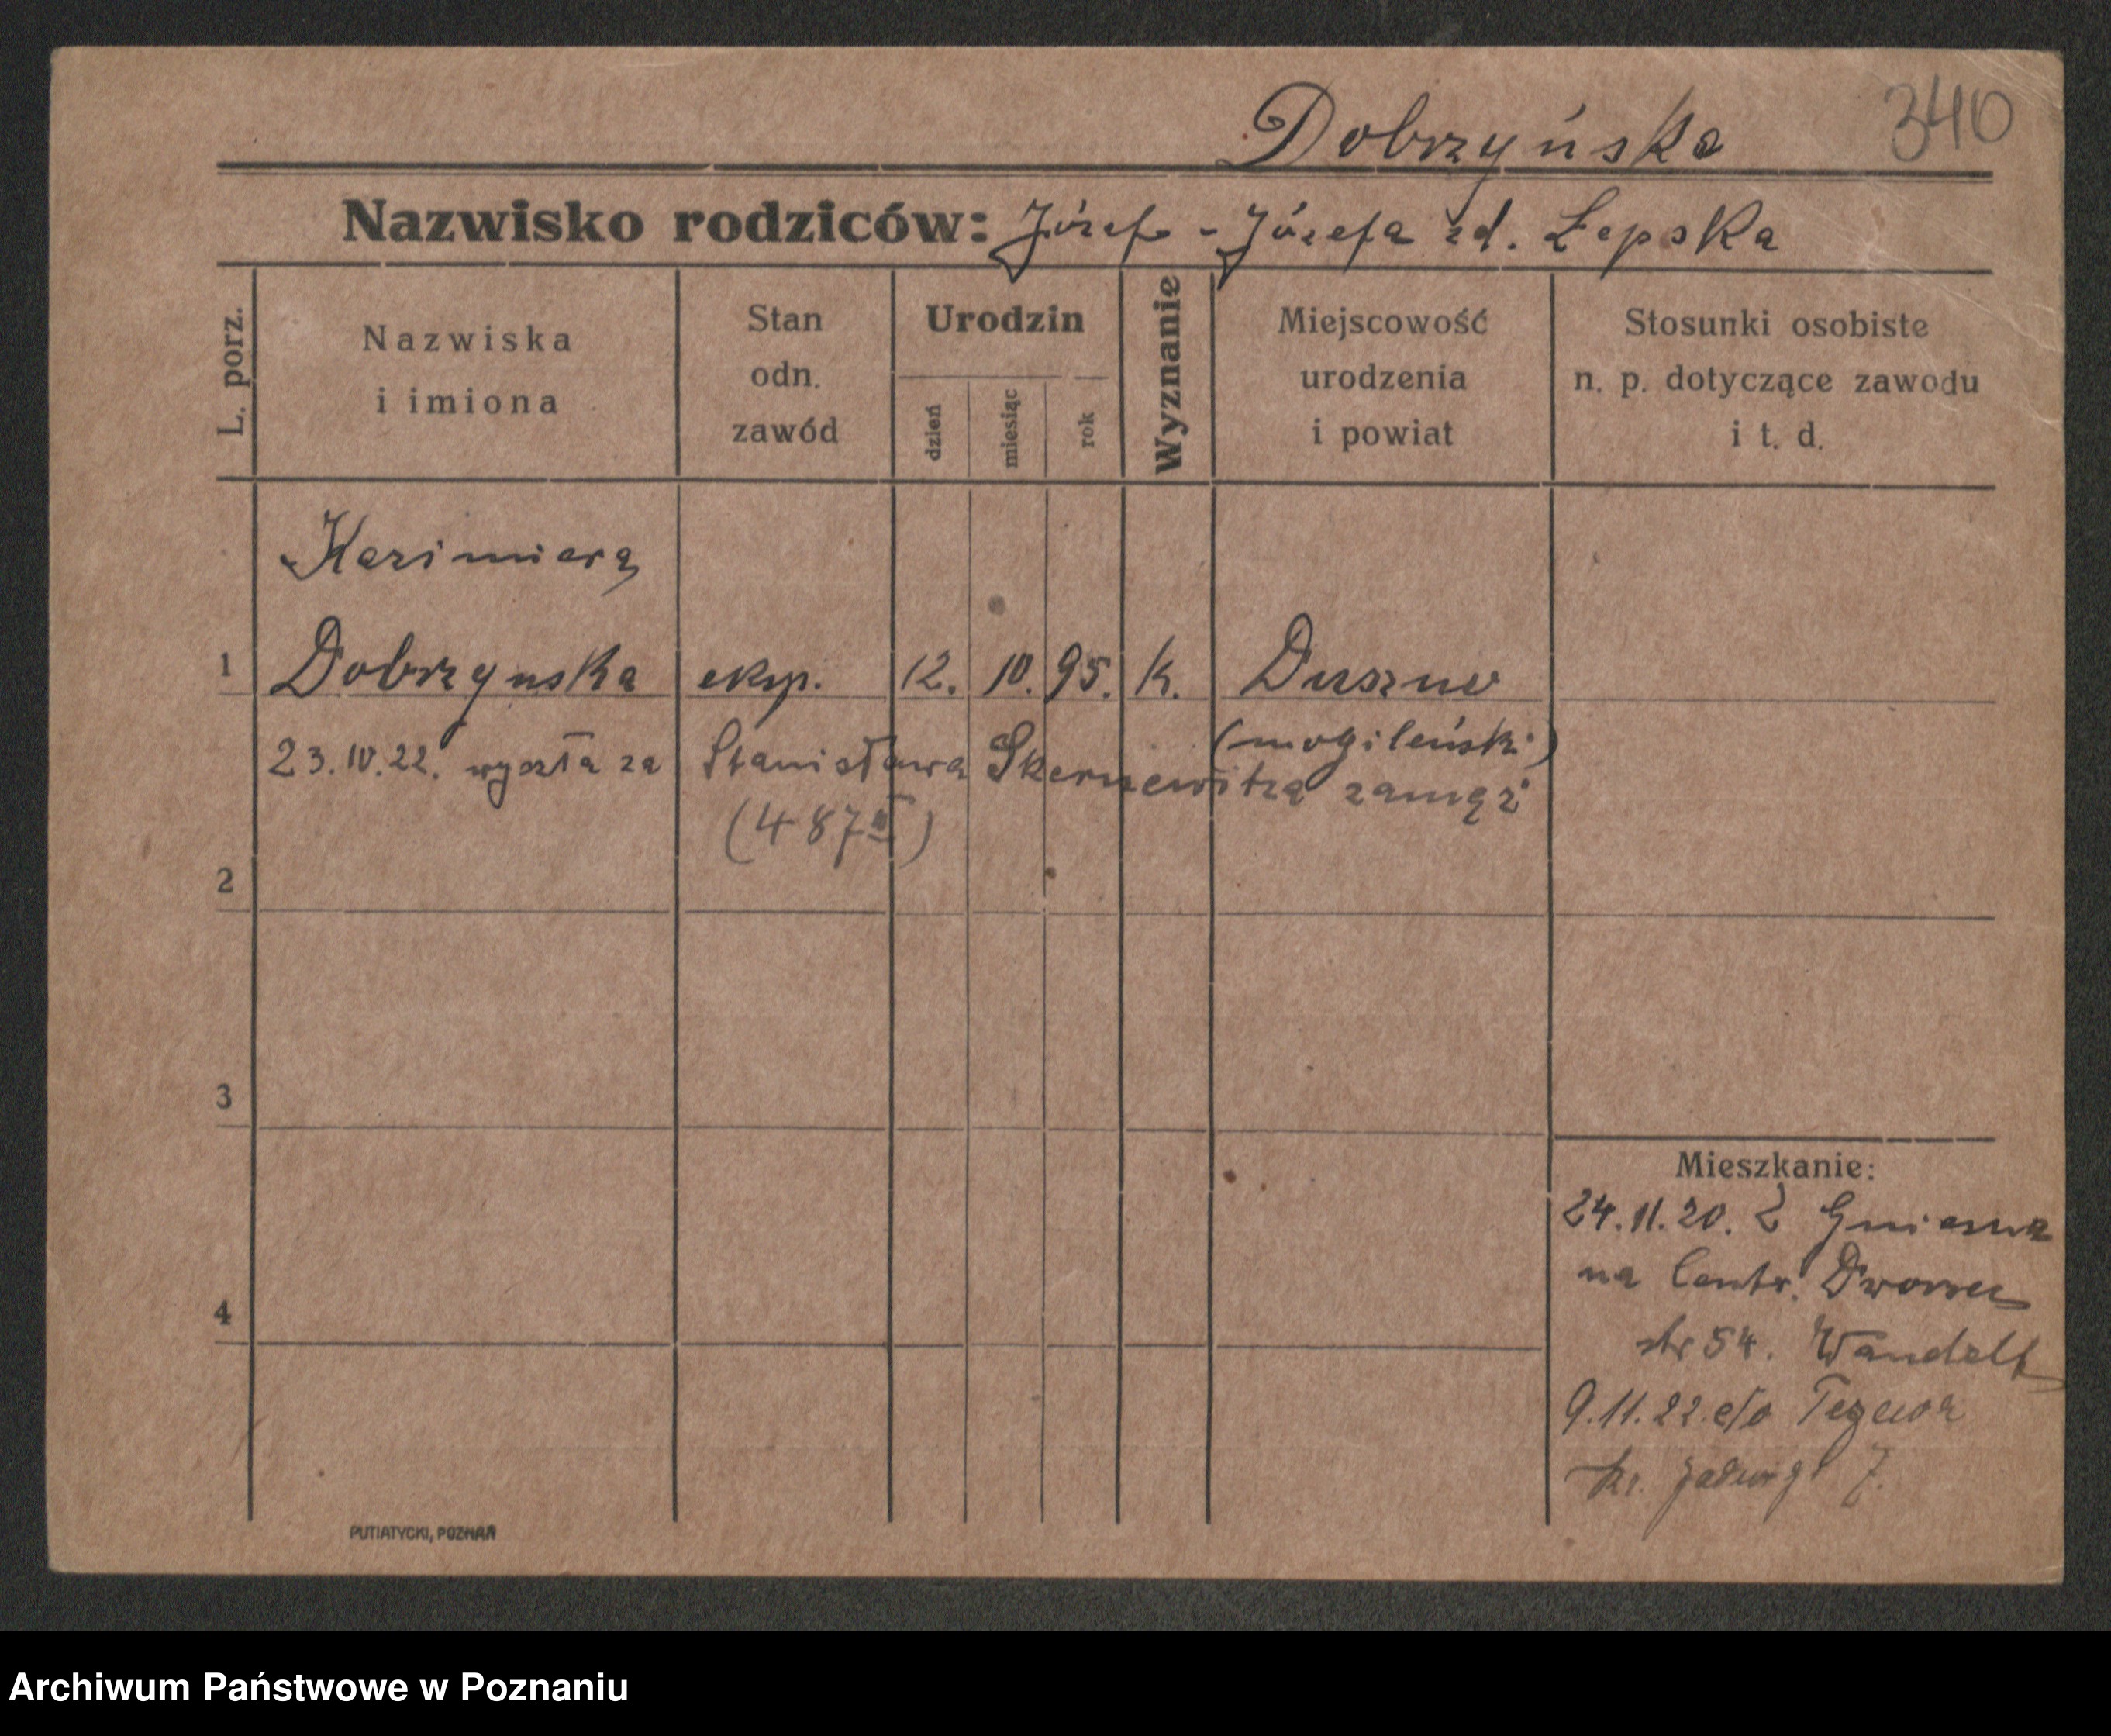 340
Dobrzyńska
Nazwisko rodziców: Józef - Józefa zd. Łepska
L. porz.
Nazwiska
i imiona
Stan
odn.
zawód
Urodzin
dzień
miesiąc
rok
Wyznanie
Miejscowość
urodzenia
i powiat
Stosunki osobiste
n. p. dotyczące zawodu
i t. d.
Kazimiera
1 Dobrzynska eksp. 12. 10. 95. k. Duszno
(mogileński)
23.10.22. wyszła za Stanisława Skernewitza zamąż
(487II)
2
3
4
Mieszkanie:
24.11.20. Z Gniezna
na Centr. Dworzec
str 54. Wandelt
9.11.22. c/o
kr. Jadwigi 7.
PUTIATYCKI, POZNAŃ
Archiwum Państwowe w Poznaniu